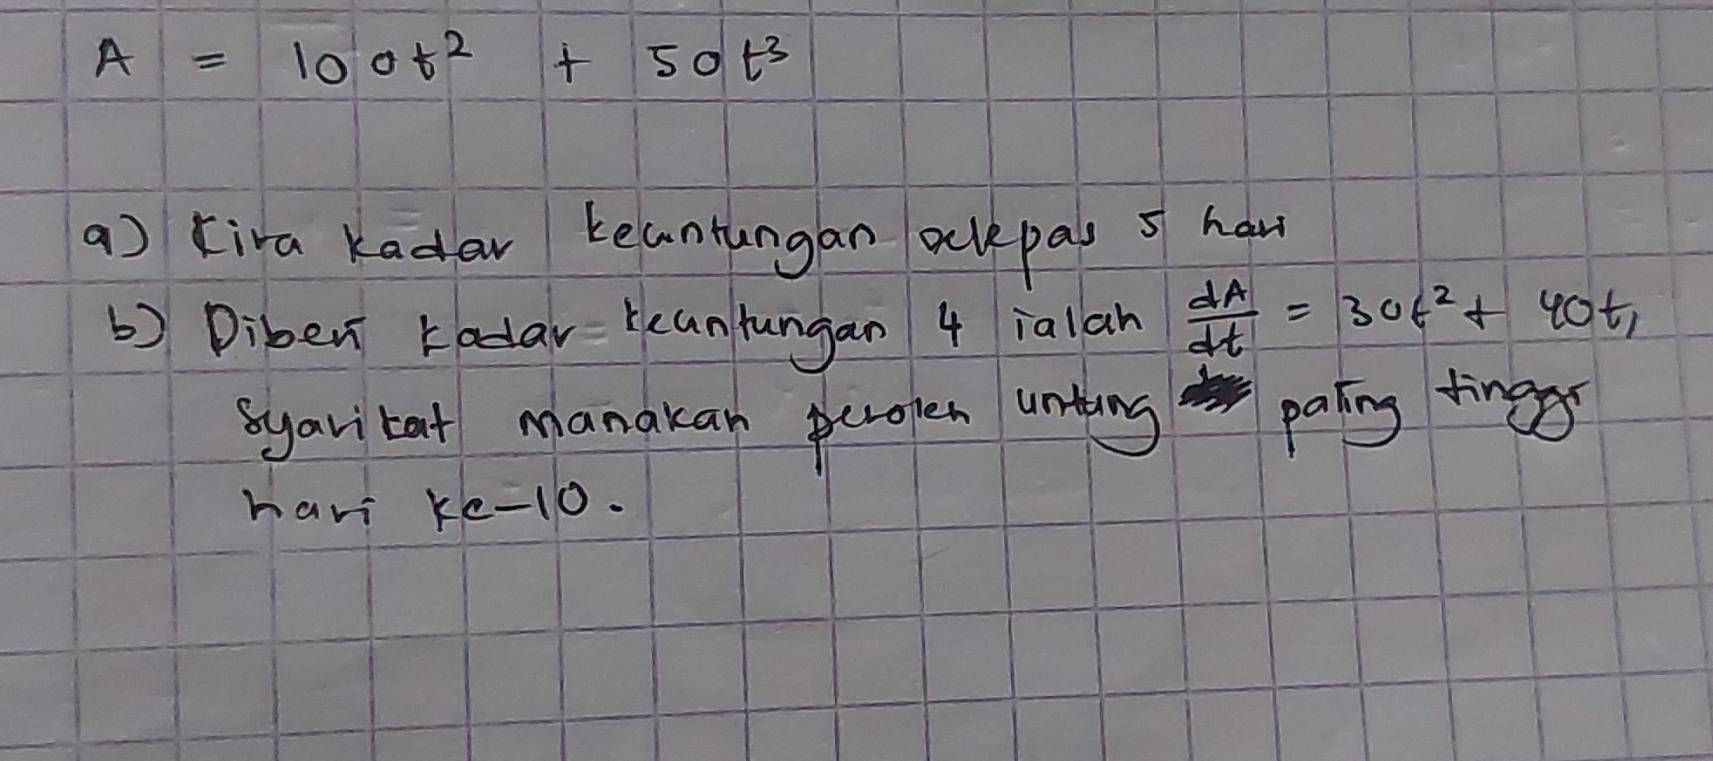 A = 100t² + 50t³
a) Kira kadar keuntungan selepas 5 hari
b) Diberi kadar keuntungan 4 ialah dA/dt = 30t² + 40t,
syarikat manakah peroleh untung paling tinggi
hari ke-10.